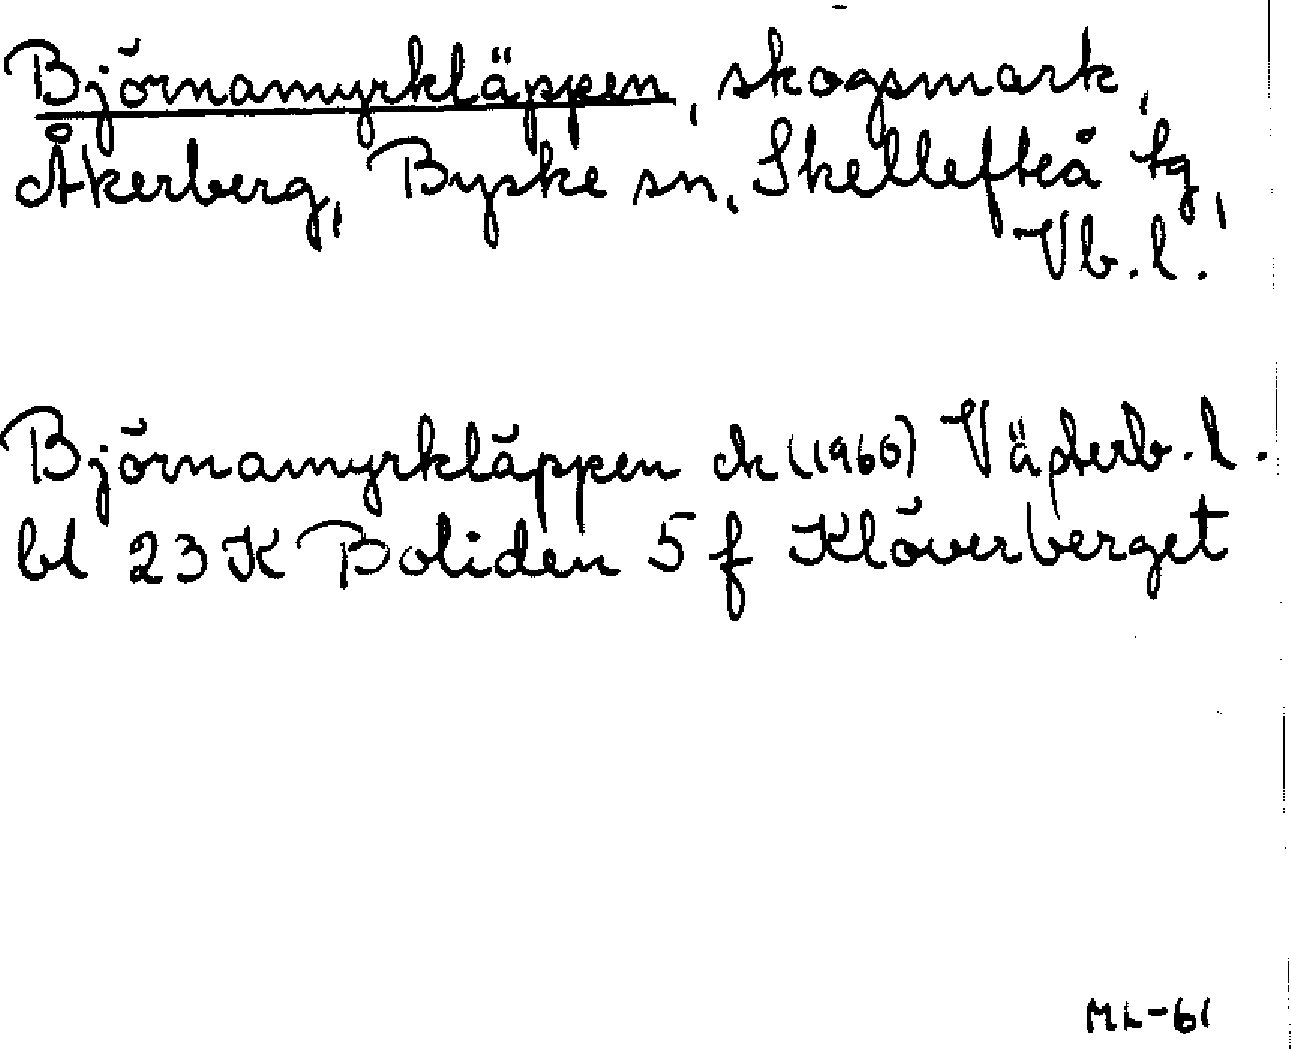 Björnamyrkläppen, skogsmark,
Åkerberg, Byske sn, Skellefteå tg,
Vb.l.
Björnamyrkläppen ek (1960) Västerb.l.
bl 23K Boliden 5 f Klöverberget
ML-61